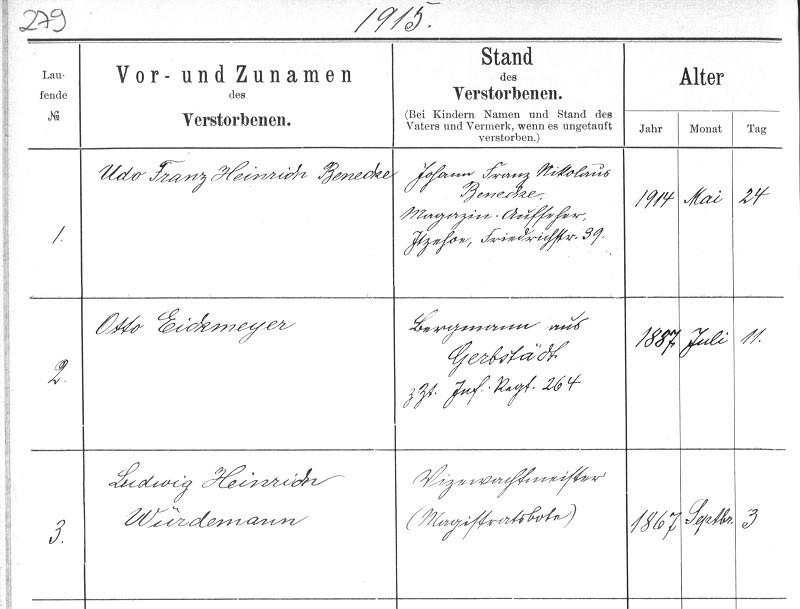 279
1915.
Laufende №
Vor- und Zunamen
des
Verstorbenen.
Stand
des
Verstorbenen.
(Bei Kindern Namen und Stand des
Vaters und Vermerk, wenn es ungetauft
verstorben.)
Alter
Jahr Monat Tag
1.
Udo Franz Heinrich Benecke
Johann Franz Nikolaus
Benecke,
Magazin-Aufseher,
Itzehoe, Friedrichstr. 39.
1914 Mai 24
2.
Otto Eickmeyer
Bergmann aus
Gerbstädt
z. Zt. Inf. Regt. 264
1887 Juli 11.
3.
Ludwig Heinrich
Würdemann
Vizewachtmeister
(Magistratsbote)
1867 Septbr. 3